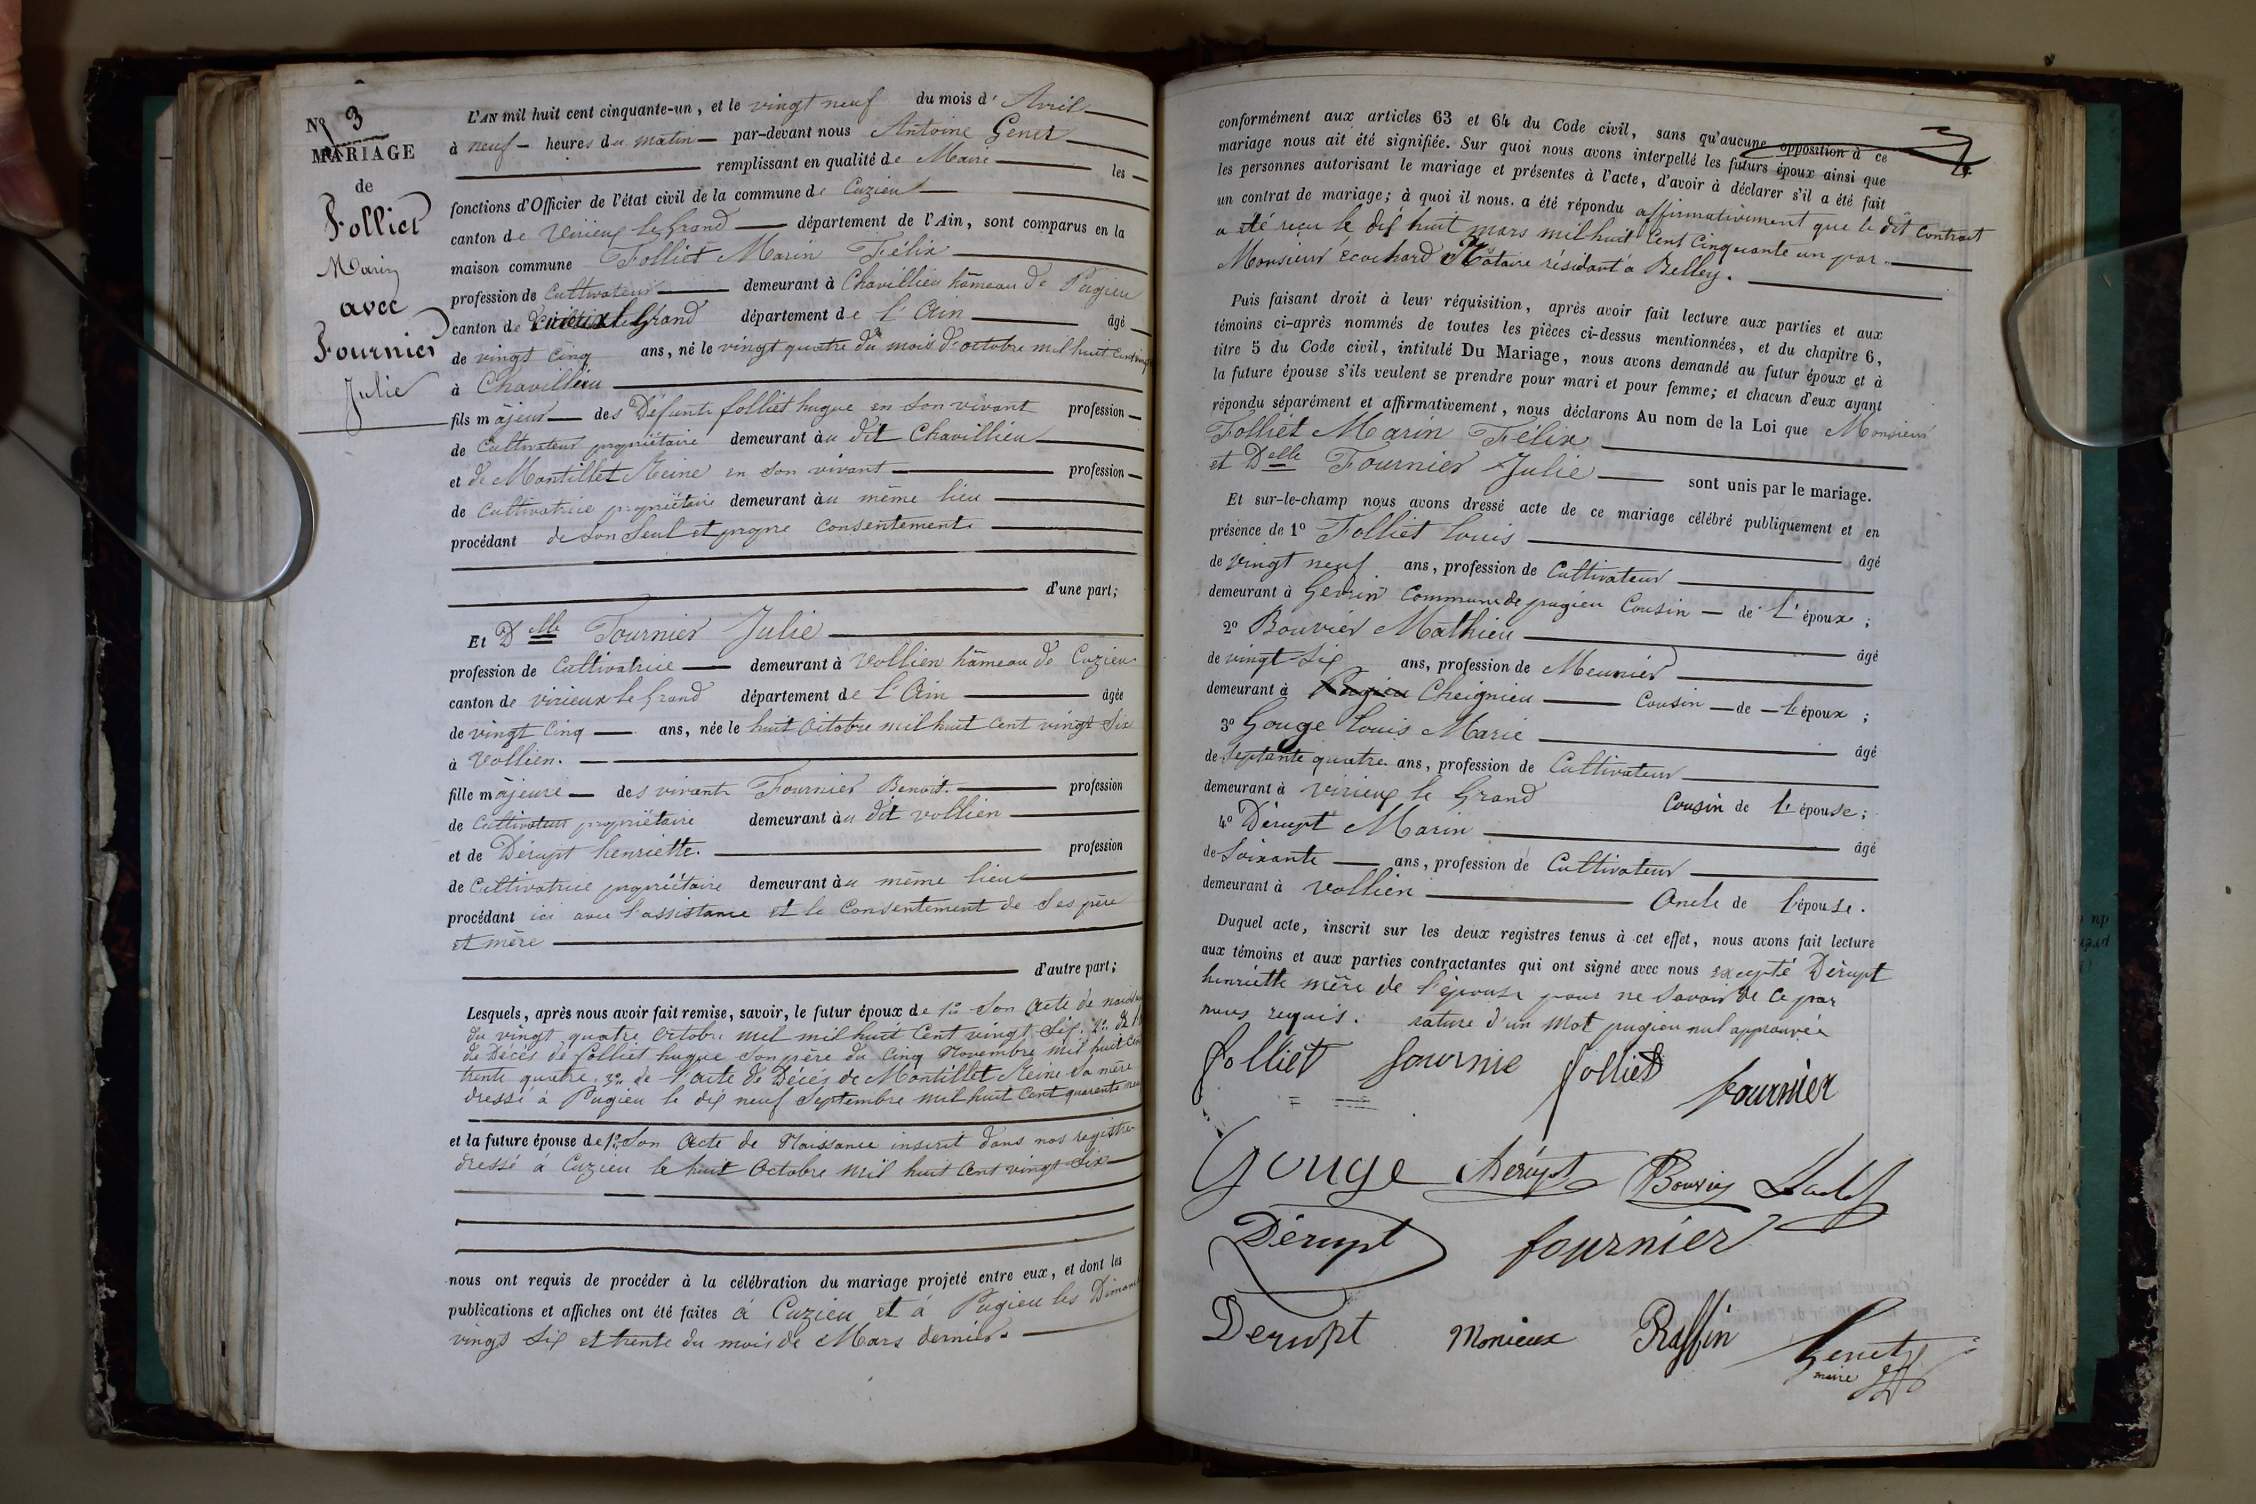 N° 3
MARIAGE
de
Folliet
Marin
avec
Fournier
Julie
L'AN mil huit cent cinquante-un, et le vingt neuf du mois d' Avril
à neuf heures du matin par-devant nous Antoine Genet
remplissant en qualité de Maire les
fonctions d'Officier de l'état civil de la commune de Cuzieu
canton de Virieux le Grand département de l'Ain, sont comparus en la
maison commune Folliet Marin Félix
profession de Cultivateur demeurant à Chavillieu hâmeau de Pugieu
canton de virieux le Grand département de l'Ain âgé
de vingt cinq ans, né le vingt quatre du mois d'octobre mil huit cent
à Chavillieu
fils majeur des Défunts folliet hugue en son vivant profession
de Cultivateur propriétaire demeurant àu dit Chavillieu
et de Montillet Reine en son vivant profession
de Cultivatrice propriétaire demeurant àu même lieu
procédant de son seul et propre consentement
d'une part;
Et Delle Fournier Julie
profession de Cultivatrice demeurant à Vollien hâmeau de Cuzieu
canton de virieux le Grand département de l'Ain âgée
de vingt cinq ans, née le huit octobre mil huit cent vingt six
à Vollien.
fille majeure des vivants Fournier Benoit. profession
de Cultivateur propriétaire demeurant àu dit vollien
et de Dérupt henriette. profession
de Cultivatrice propriétaire demeurant àu même lieu
procédant ici avec l'assistance et le consentement de ses père
et mère
d'autre part;
Lesquels, après nous avoir fait remise, savoir, le futur époux de 1° son acte de
du vingt quatre octobre mil mil huit cent vingt six. 2° de
de Décès de folliet hugue son père du cinq Novembre mil huit cent
trente quatre. 3° de l'acte de Décès de Montillet Reine sa mère
dressé à Pugieu le dix neuf Septembre mil huit cent quarante
et la future épouse de 1° son acte de Naissance inscrit dans nos registres
dressé à Cuzieu le huit Octobre mil huit cent vingt six
nous ont requis de procéder à la célébration du mariage projeté entre eux, et dont les
publications et affiches ont été faites à Cuzieu et à Pugieu les
vingt six et trente du mois de Mars dernier.
conformément aux articles 63 et 64 du Code civil, sans qu'aucune opposition à ce
mariage nous ait été signifiée. Sur quoi nous avons interpellé les futurs époux ainsi que
les personnes autorisant le mariage et présentes à l'acte, d'avoir à déclarer s'il a été fait
un contrat de mariage; à quoi il nous a été répondu affirmativement que le dit contrat
a été reçu le dix huit mars mil huit cent cinquante un par
Monsieur Ecochard Notaire résidant à Belley.
Puis faisant droit à leur réquisition, après avoir fait lecture aux parties et aux
témoins ci-après nommés de toutes les pièces ci-dessus mentionnées, et du chapitre 6,
titre 5 du Code civil, intitulé Du Mariage, nous avons demandé au futur époux et à
la future épouse s'ils veulent se prendre pour mari et pour femme; et chacun d'eux ayant
répondu séparément et affirmativement, nous déclarons Au nom de la Loi que Monsieur
Folliet Marin Félix
et Delle Fournier Julie sont unis par le mariage.
Et sur-le-champ nous avons dressé acte de ce mariage célébré publiquement et en
présence de 1° Folliet Louis âgé
de vingt neuf ans, profession de Cultivateur
demeurant à Gevrin Commune de pugieu Cousin de l'époux;
2° Bouvier Mathieu âgé
de vingt six ans, profession de Meunier
demeurant à Pugieu Cheignieu Cousin de l'époux;
3° Gouge Louis Marie âgé
de septante quatre ans, profession de Cultivateur
demeurant à virieux le Grand Cousin de l'épouse;
4° Dérupt Marin âgé
de Soixante ans, profession de Cultivateur
demeurant à vollien Oncle de l'épouse.
Duquel acte, inscrit sur les deux registres tenus à cet effet, nous avons fait lecture
aux témoins et aux parties contractantes qui ont signé avec nous excepté Dérupt
henriette mère de l'épouse pour ne savoir de ce par
nous requis. rature d'un mot pugieu nul approuvée
folliet fournie folliet fournier
Gouge Derupt Bouvier
Dérupt fournier
Derupt Monieux Raffin Genet
maire